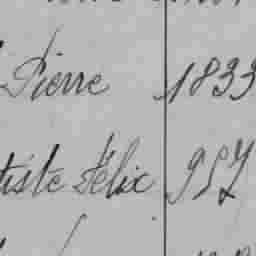 Pierre 1833
tiste Félix 957